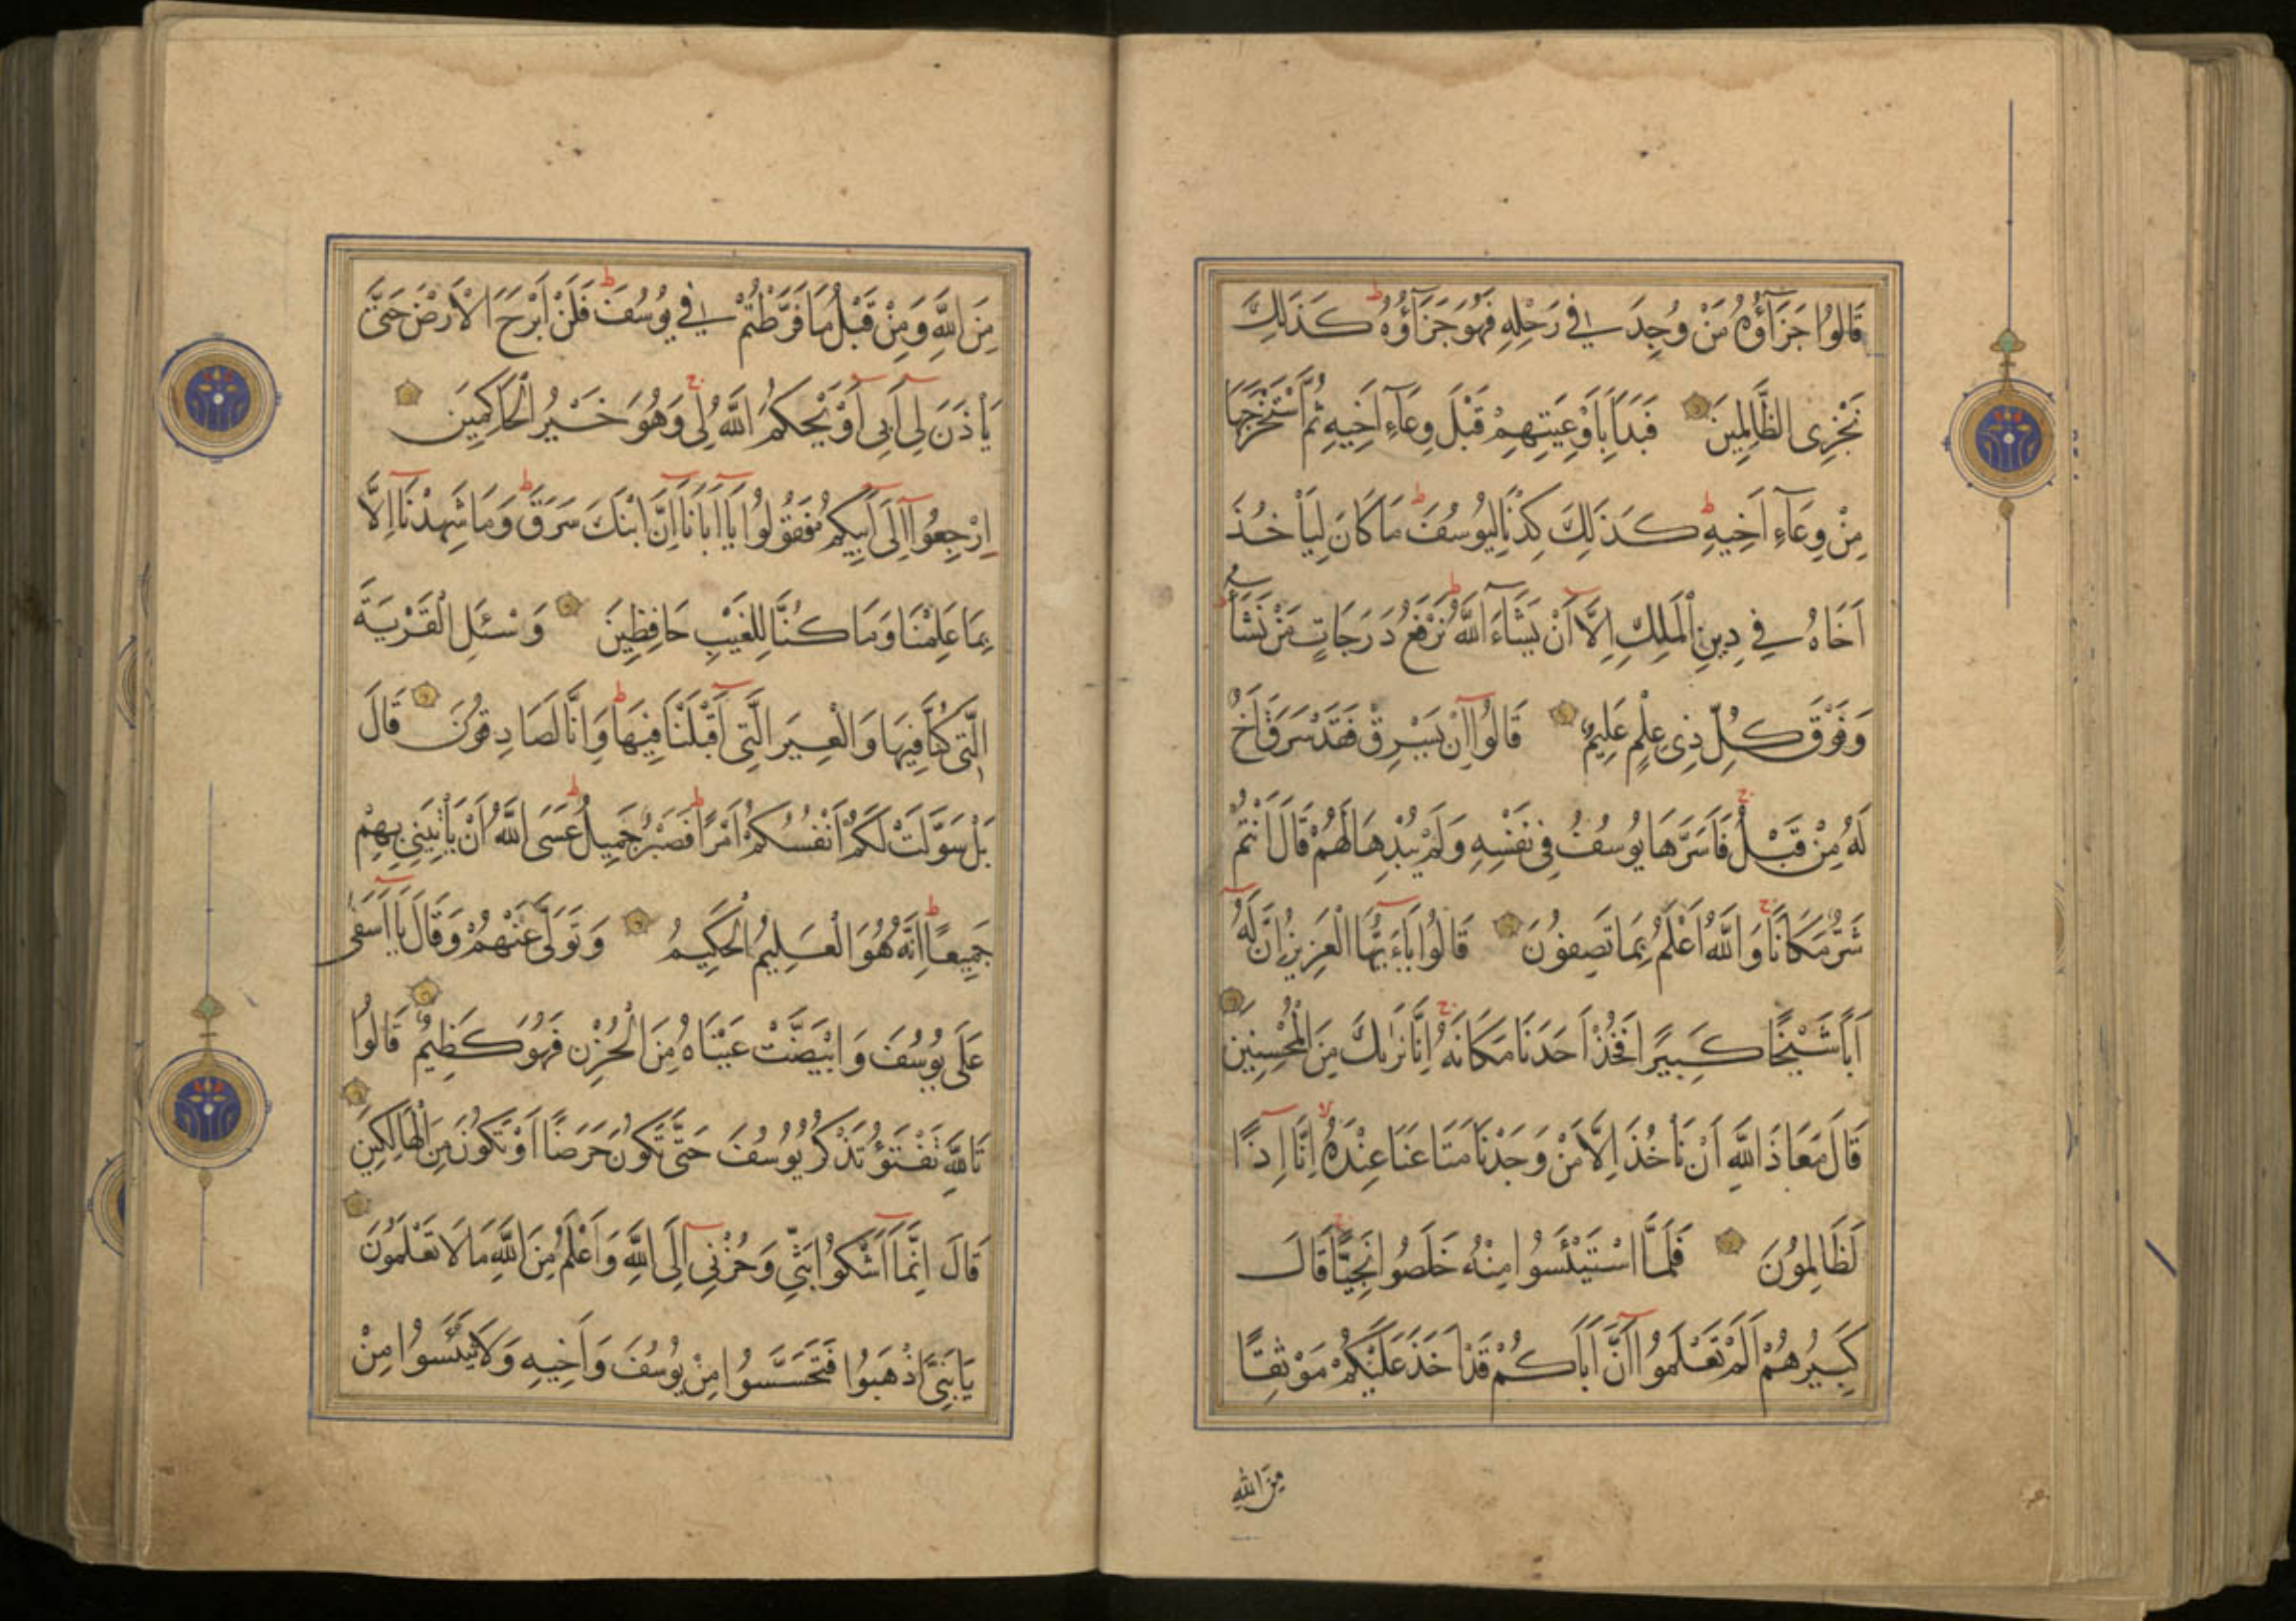 قَالُوا جَزَآؤُهُ مَنْ وُجِدَ فِي رَحْلِهِ فَهُوَ جَزَآؤُهُ ط كَذَلِكَ
نَجْزِي الظَّالِمِينَ فَبَدَأَ بِأَوْعِيَتِهِمْ قَبْلَ وِعَآءِ أَخِيهِ ثُمَّ اسْتَخْرَجَهَا
مِنْ وِعَآءِ أَخِيهِ ط كَذَلِكَ كِدْنَا لِيُوسُفَ ط مَا كَانَ لِيَأْخُذَ
أَخَاهُ فِي دِينِ الْمَلِكِ إِلَّا أَنْ يَشَآءَ اللَّهُ ط نَرْفَعُ دَرَجَاتٍ مَنْ نَشَاءُ ط
وَفَوْقَ كُلِّ ذِي عِلْمٍ عَلِيمٌ قَالُوا إِنْ يَسْرِقْ فَقَدْ سَرَقَ أَخٌ
لَهُ مِنْ قَبْلُ ج فَأَسَرَّهَا يُوسُفُ فِي نَفْسِهِ وَلَمْ يُبْدِهَا لَهُمْ قَالَ أَنْتُمْ
شَرٌّ مَكَانًا ج وَاللَّهُ أَعْلَمُ بِمَا تَصِفُونَ قَالُوا يَاءَيُّهَا الْعَزِيزُ إِنَّ لَهُ
أَبًا شَيْخًا كَبِيرًا فَخُذْ أَحَدَنَا مَكَانَهُ ج إِنَّا نَرَيكَ مِنَ الْمُحْسِنِينَ
قَالَ مَعَاذَ اللَّهِ أَنْ نَأْخُذَ إِلَّا مَنْ وَجَدْنَا مَتَاعَنَا عِنْدَهُ لا إِنَّا إِذًا
لَظَالِمُونَ فَلَمَّا اسْتَيْئَسُوا مِنْهُ خَلَصُوا نَجِيًّا ج قَالَ
كَبِيرُهُمْ أَلَمْ تَعْلَمُوا أَنَّ أَبَاكُمْ قَدْ أَخَذَ عَلَيْكُمْ مَوْثِقًا
مِنَ اللَّهِ
مِنَ اللَّهِ وَمِنْ قَبْلُ مَا فَرَّطْتُمْ فِي يُوسُفَ ط فَلَنْ أَبْرَحَ الْأَرْضَ حَتَّى
يَأْذَنَ لِي أَبِي أَوْ يَحْكُمَ اللَّهُ لِي ج وَهُوَ خَيْرُ الْحَاكِمِينَ
اِرْجِعُوا إِلَى أَبِيكُمْ فَقُولُوا يَا أَبَانَا إِنَّ ابْنَكَ سَرَقَ ط وَمَا شَهِدْنَا إِلَّا
بِمَا عَلِمْنَا وَمَا كُنَّا لِلْغَيْبِ حَافِظِينَ وَسْئَلِ الْقَرْيَةَ
الَّتِي كُنَّا فِيهَا وَالْعِيرَ الَّتِي أَقْبَلْنَا فِيهَا ط وَإِنَّا لَصَادِقُونَ قَالَ
بَلْ سَوَّلَتْ لَكُمْ أَنْفُسُكُمْ أَمْرًا ط فَصَبْرٌ جَمِيلٌ ط عَسَى اللَّهُ أَنْ يَأْتِيَنِي بِهِمْ
جَمِيعًا ط إِنَّهُ هُوَ الْعَلِيمُ الْحَكِيمُ وَتَوَلَّى عَنْهُمْ وَقَالَ يَا أَسَفَى
عَلَى يُوسُفَ وَابْيَضَّتْ عَيْنَاهُ مِنَ الْحُزْنِ فَهُوَ كَظِيمٌ قَالُوا
تَاللَّهِ تَفْتَؤُ تَذْكُرُ يُوسُفَ حَتَّى تَكُونَ حَرَضًا أَوْ تَكُونَ مِنَ الْهَالِكِينَ
قَالَ إِنَّمَا أَشْكُوا بَثِّي وَحُزْنِي إِلَى اللَّهِ وَأَعْلَمُ مِنَ اللَّهِ مَا لَا تَعْلَمُونَ
يَا بَنِيَّ اذْهَبُوا فَتَحَسَّسُوا مِنْ يُوسُفَ وَأَخِيهِ وَلَا تَيْئَسُوا مِنْ